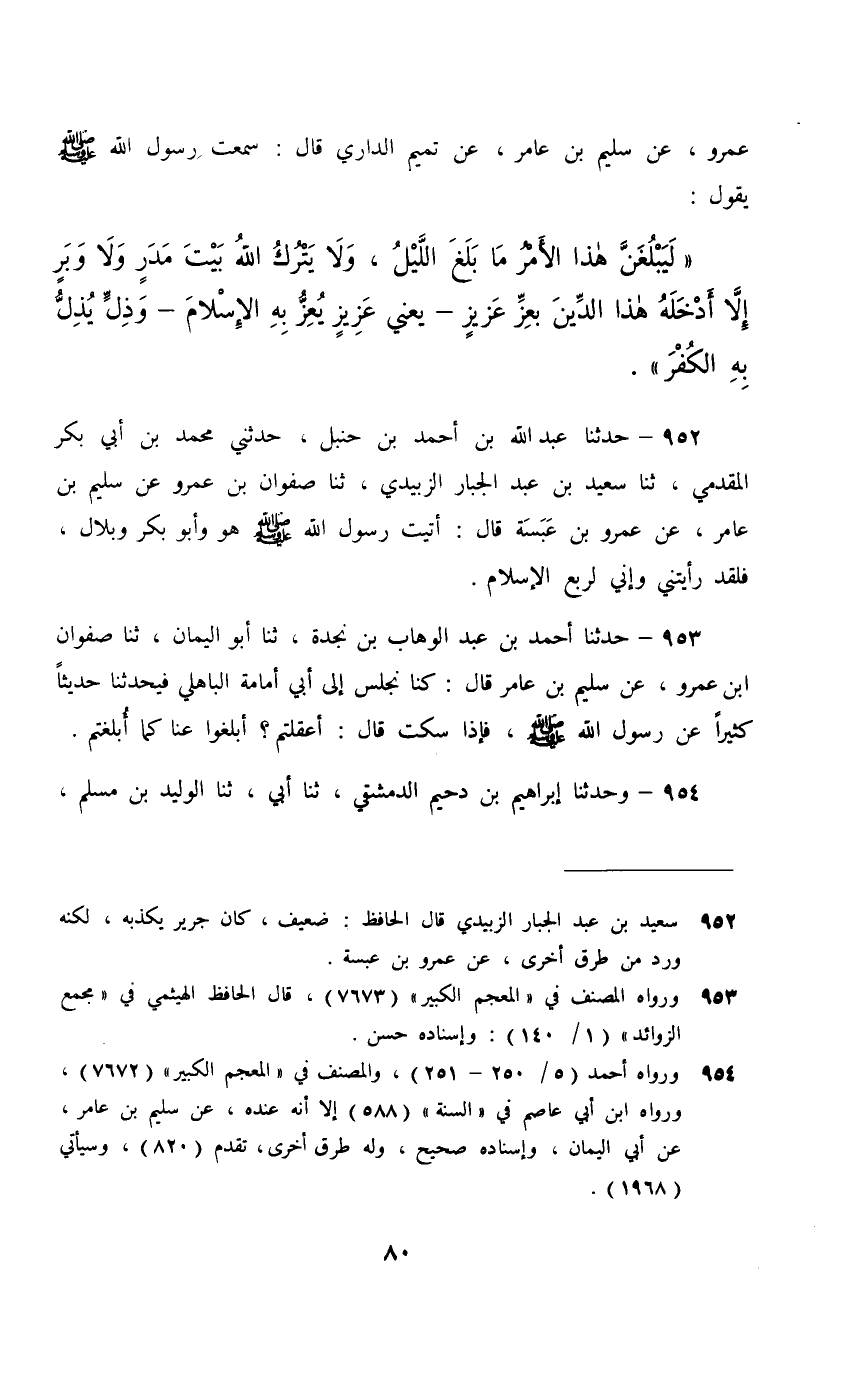 عمرو ، عن سليم بن عامر ، عن تميم الداري قال : سمعت رسول الله ﷺ
يقول :
« لَيَبْلُغَنَّ هٰذا الأَمْرُ مَا بَلَغَ اللَّيْلُ ، وَلَا يَتْرُكُ اللهُ بَيْتَ مَدَرٍ وَلَا وَبَرٍ
إِلَّا أَدْخَلَهُ هٰذا الدِّينَ بعِزِّ عَزيزٍ – يعني عَزِيزٍ يُعِزُّ بِهِ الإِسْلامَ – وَذِلٍّ يُذِلُّ
بِهِ الكُفْرَ » .
٩٥٢ – حدثنا عبد الله بن أحمد بن حنبل ، حدثني محمد بن أبي بكر
المقدمي ، ثنا سعيد بن عبد الجبار الزبيدي ، ثنا صفوان بن عمرو عن سليم بن
عامر ، عن عمرو بن عَبَسَة قال : أتيت رسول الله ﷺ هو وأبو بكر وبلال ،
فلقد رأيتني وإني لربع الإسلام .
٩٥٣ – حدثنا أحمد بن عبد الوهاب بن نجدة ، ثنا أبو اليمان ، ثنا صفوان
ابن عمرو ، عن سليم بن عامر قال : كنا نجلس إلى أبي أمامة الباهلي فيحدثنا حديثاً
كثيراً عن رسول الله ﷺ ، فإذا سكت قال : أعقلتم ؟ أبلغوا عنا كما أُبلغتم .
٩٥٤ – وحدثنا إبراهيم بن دحيم الدمشقي ، ثنا أبي ، ثنا الوليد بن مسلم ،
٩٥٢ سعيد بن عبد الجبار الزبيدي قال الحافظ : ضعيف ، كان جرير يكذبه ، لكنه
ورد من طرق أخرى ، عن عمرو بن عبسة .
٩٥٣ ورواه المصنف في « المعجم الكبير » (٧٦٧٣) ، قال الحافظ الهيثمي في « مجمع
الزوائد » (١/ ١٤٠) : وإسناده حسن .
٩٥٤ ورواه أحمد (٥/ ٢٥٠ – ٢٥١) ، والمصنف في « المعجم الكبير » (٧٦٧٢) ،
ورواه ابن أبي عاصم في « السنة » (٥٨٨) إلا أنه عنده ، عن سليم بن عامر ،
عن أبي اليمان ، وإسناده صحيح ، وله طرق أخرى، تقدم (٨٢٠) ، وسيأتي
(١٩٦٨) .
٨٠